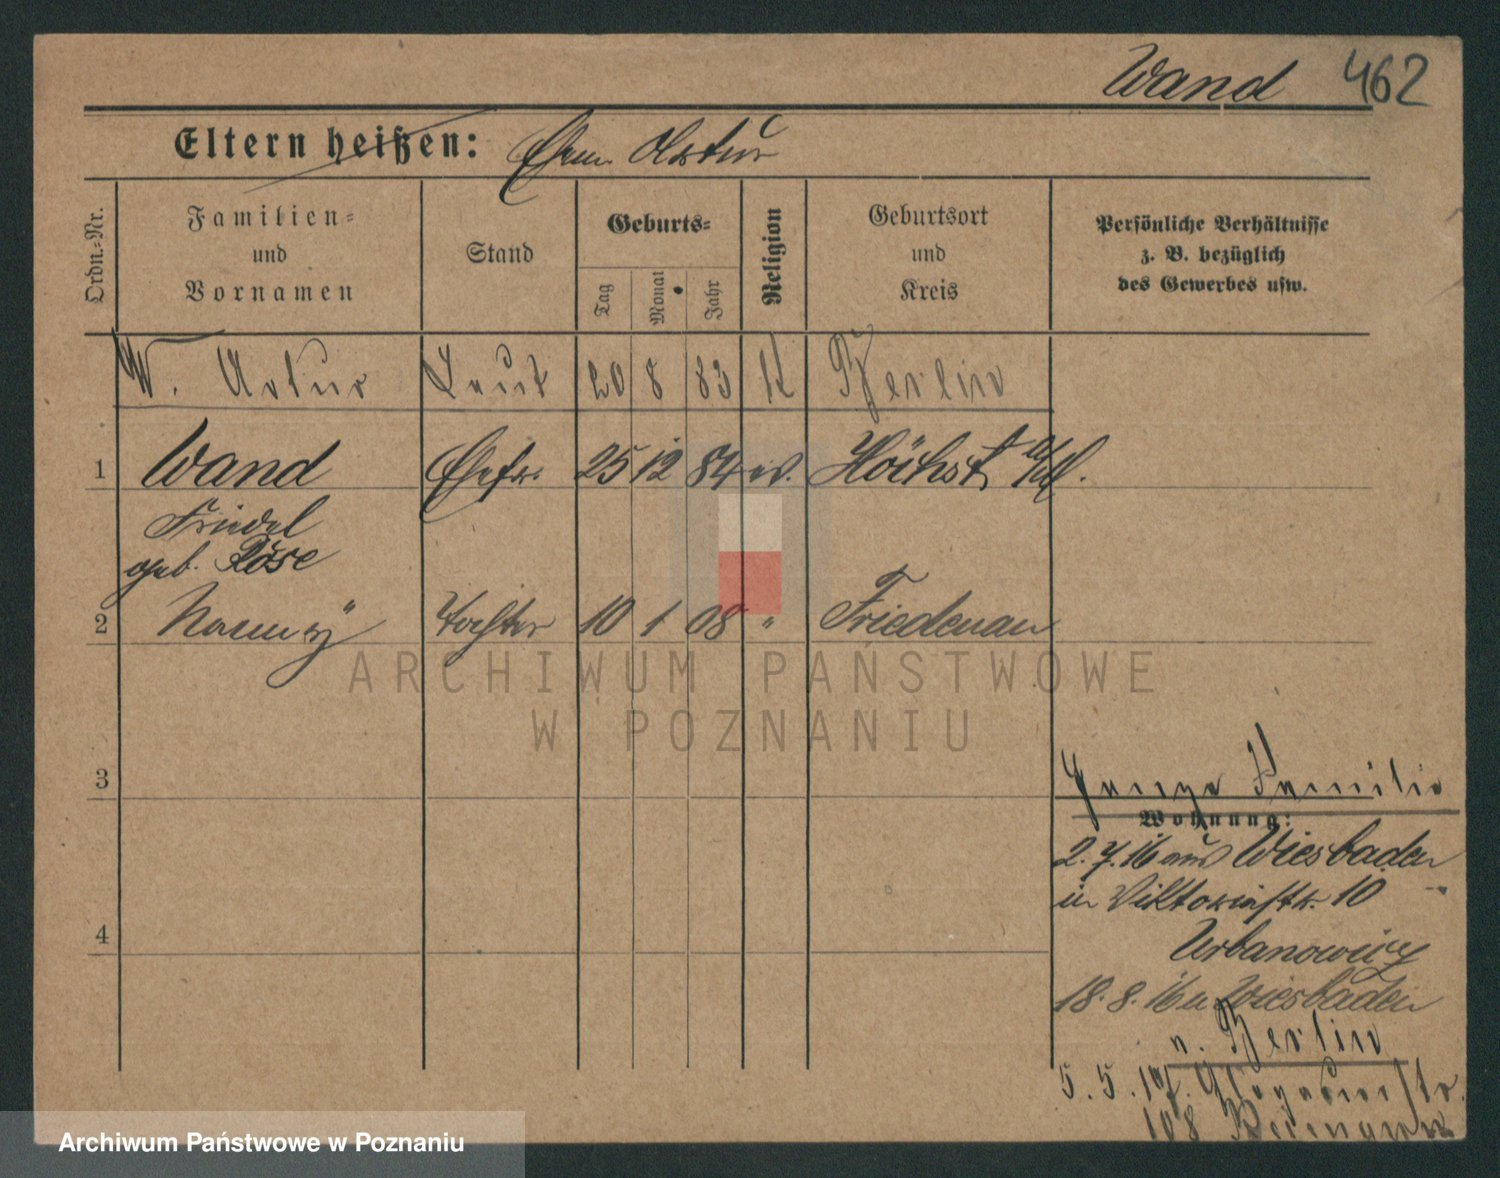 Wand 462
Eltern heißen: Ehem. Artur
Ordn.-Nr.
Familien-
und
Vornamen
Stand
Geburts-
Tag
Monat
Jahr
Religion
Geburtsort
und
Kreis
Persönliche Verhältnisse
z. B. bezüglich
des Gewerbes usw.
W. Artur Leut 20 8 83 Berlin
1 Wand Ehefr. 25 12 84 ev. Höchst a/M.
Friedel
geb. Röse
2 Nanny Tochter 10 1 08 " Friedenau
ARCHIWUM PAŃSTWOWE
W POZNANIU
3
Ganze Familie
Wohnung:
2.7.16 aus Wiesbaden
in Viktoriastr. 10
4
Urbanowicz
18.8.16 n Wiesbaden
n. Berlin
5.5.17. Glogauerstr.
108
Archiwum Państwowe w Poznaniu